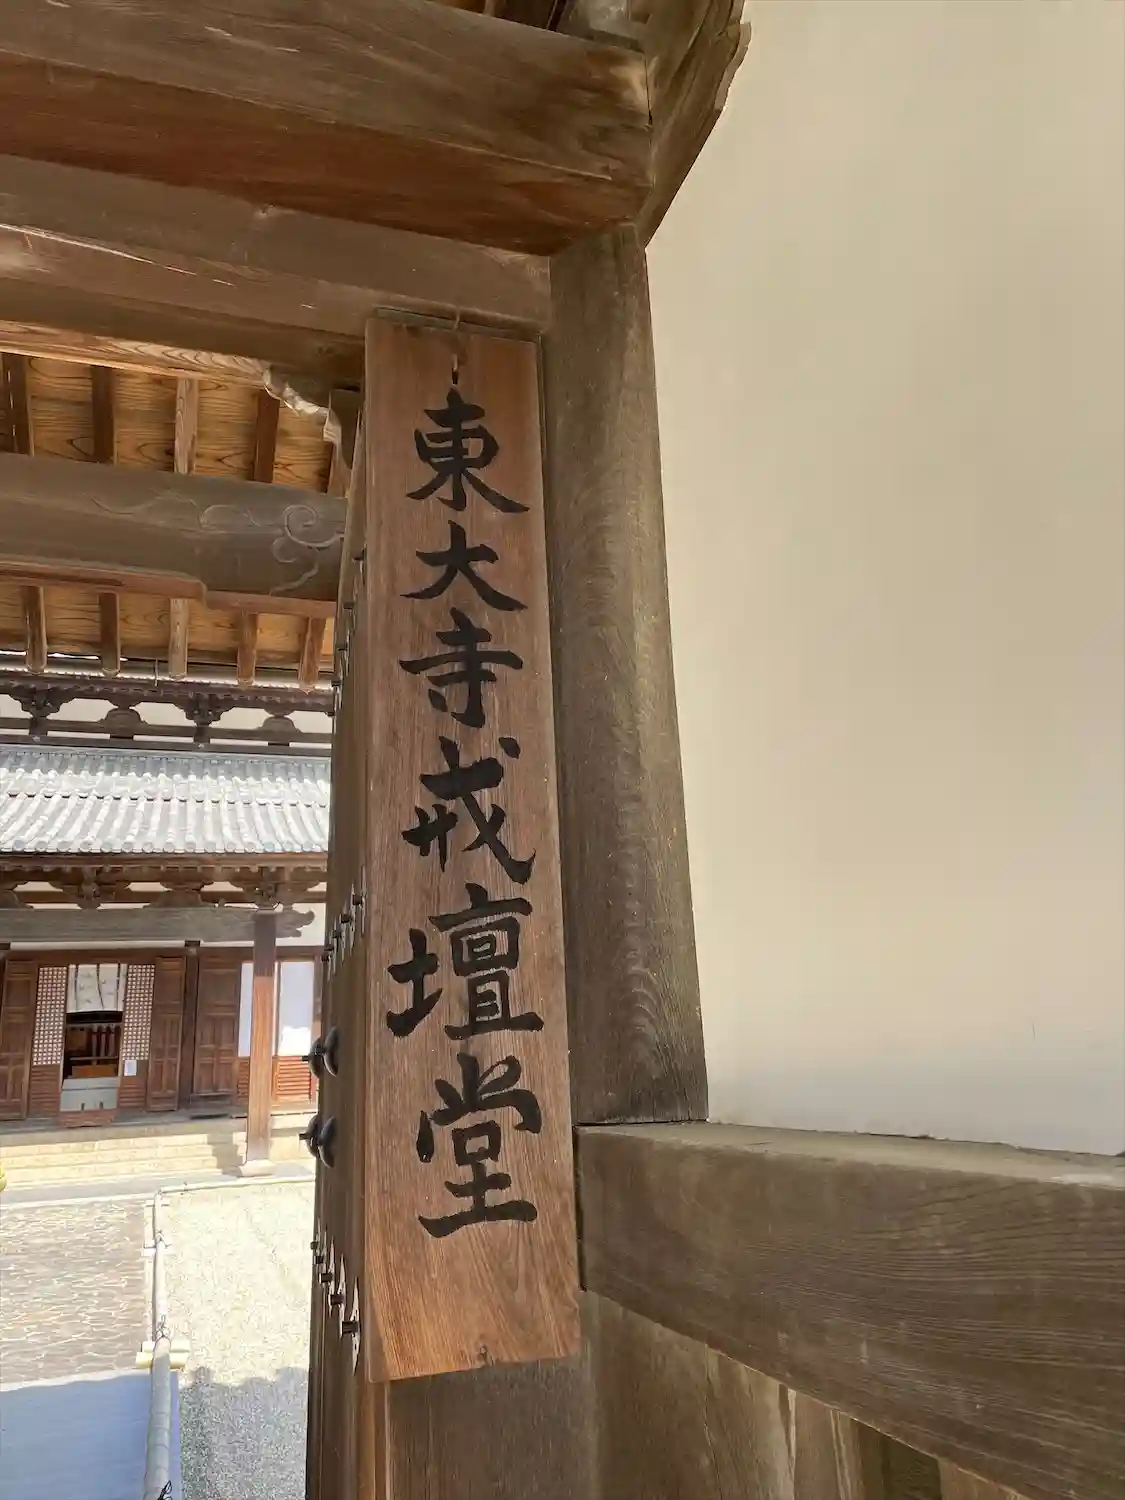 東大寺戒壇堂